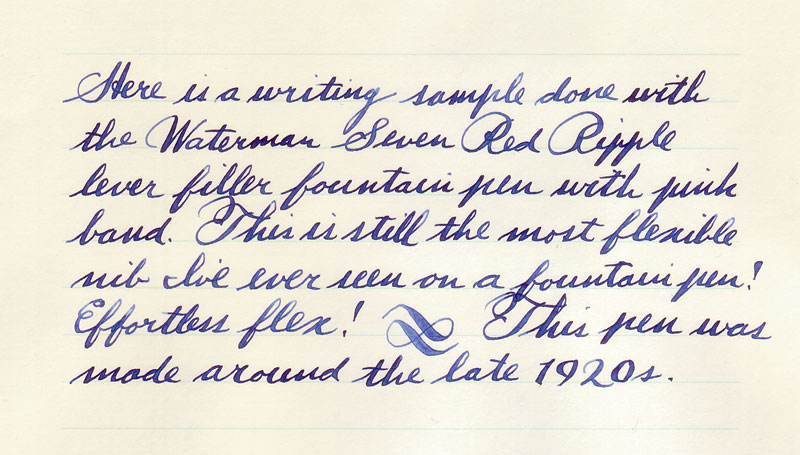 Here is a writing sample done with
the Waterman Seven Red Ripple
lever filler fountain pen with pink
band. This is still the most flexible
nib I've ever seen on a fountain pen!
Effortless flex! This pen was
made around the late 1920s.